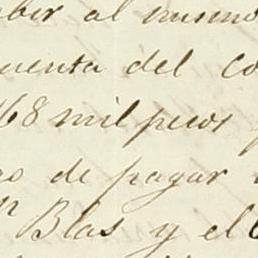 al mismo
cuenta del
68 mil pesos
de pagar
n Blas y el